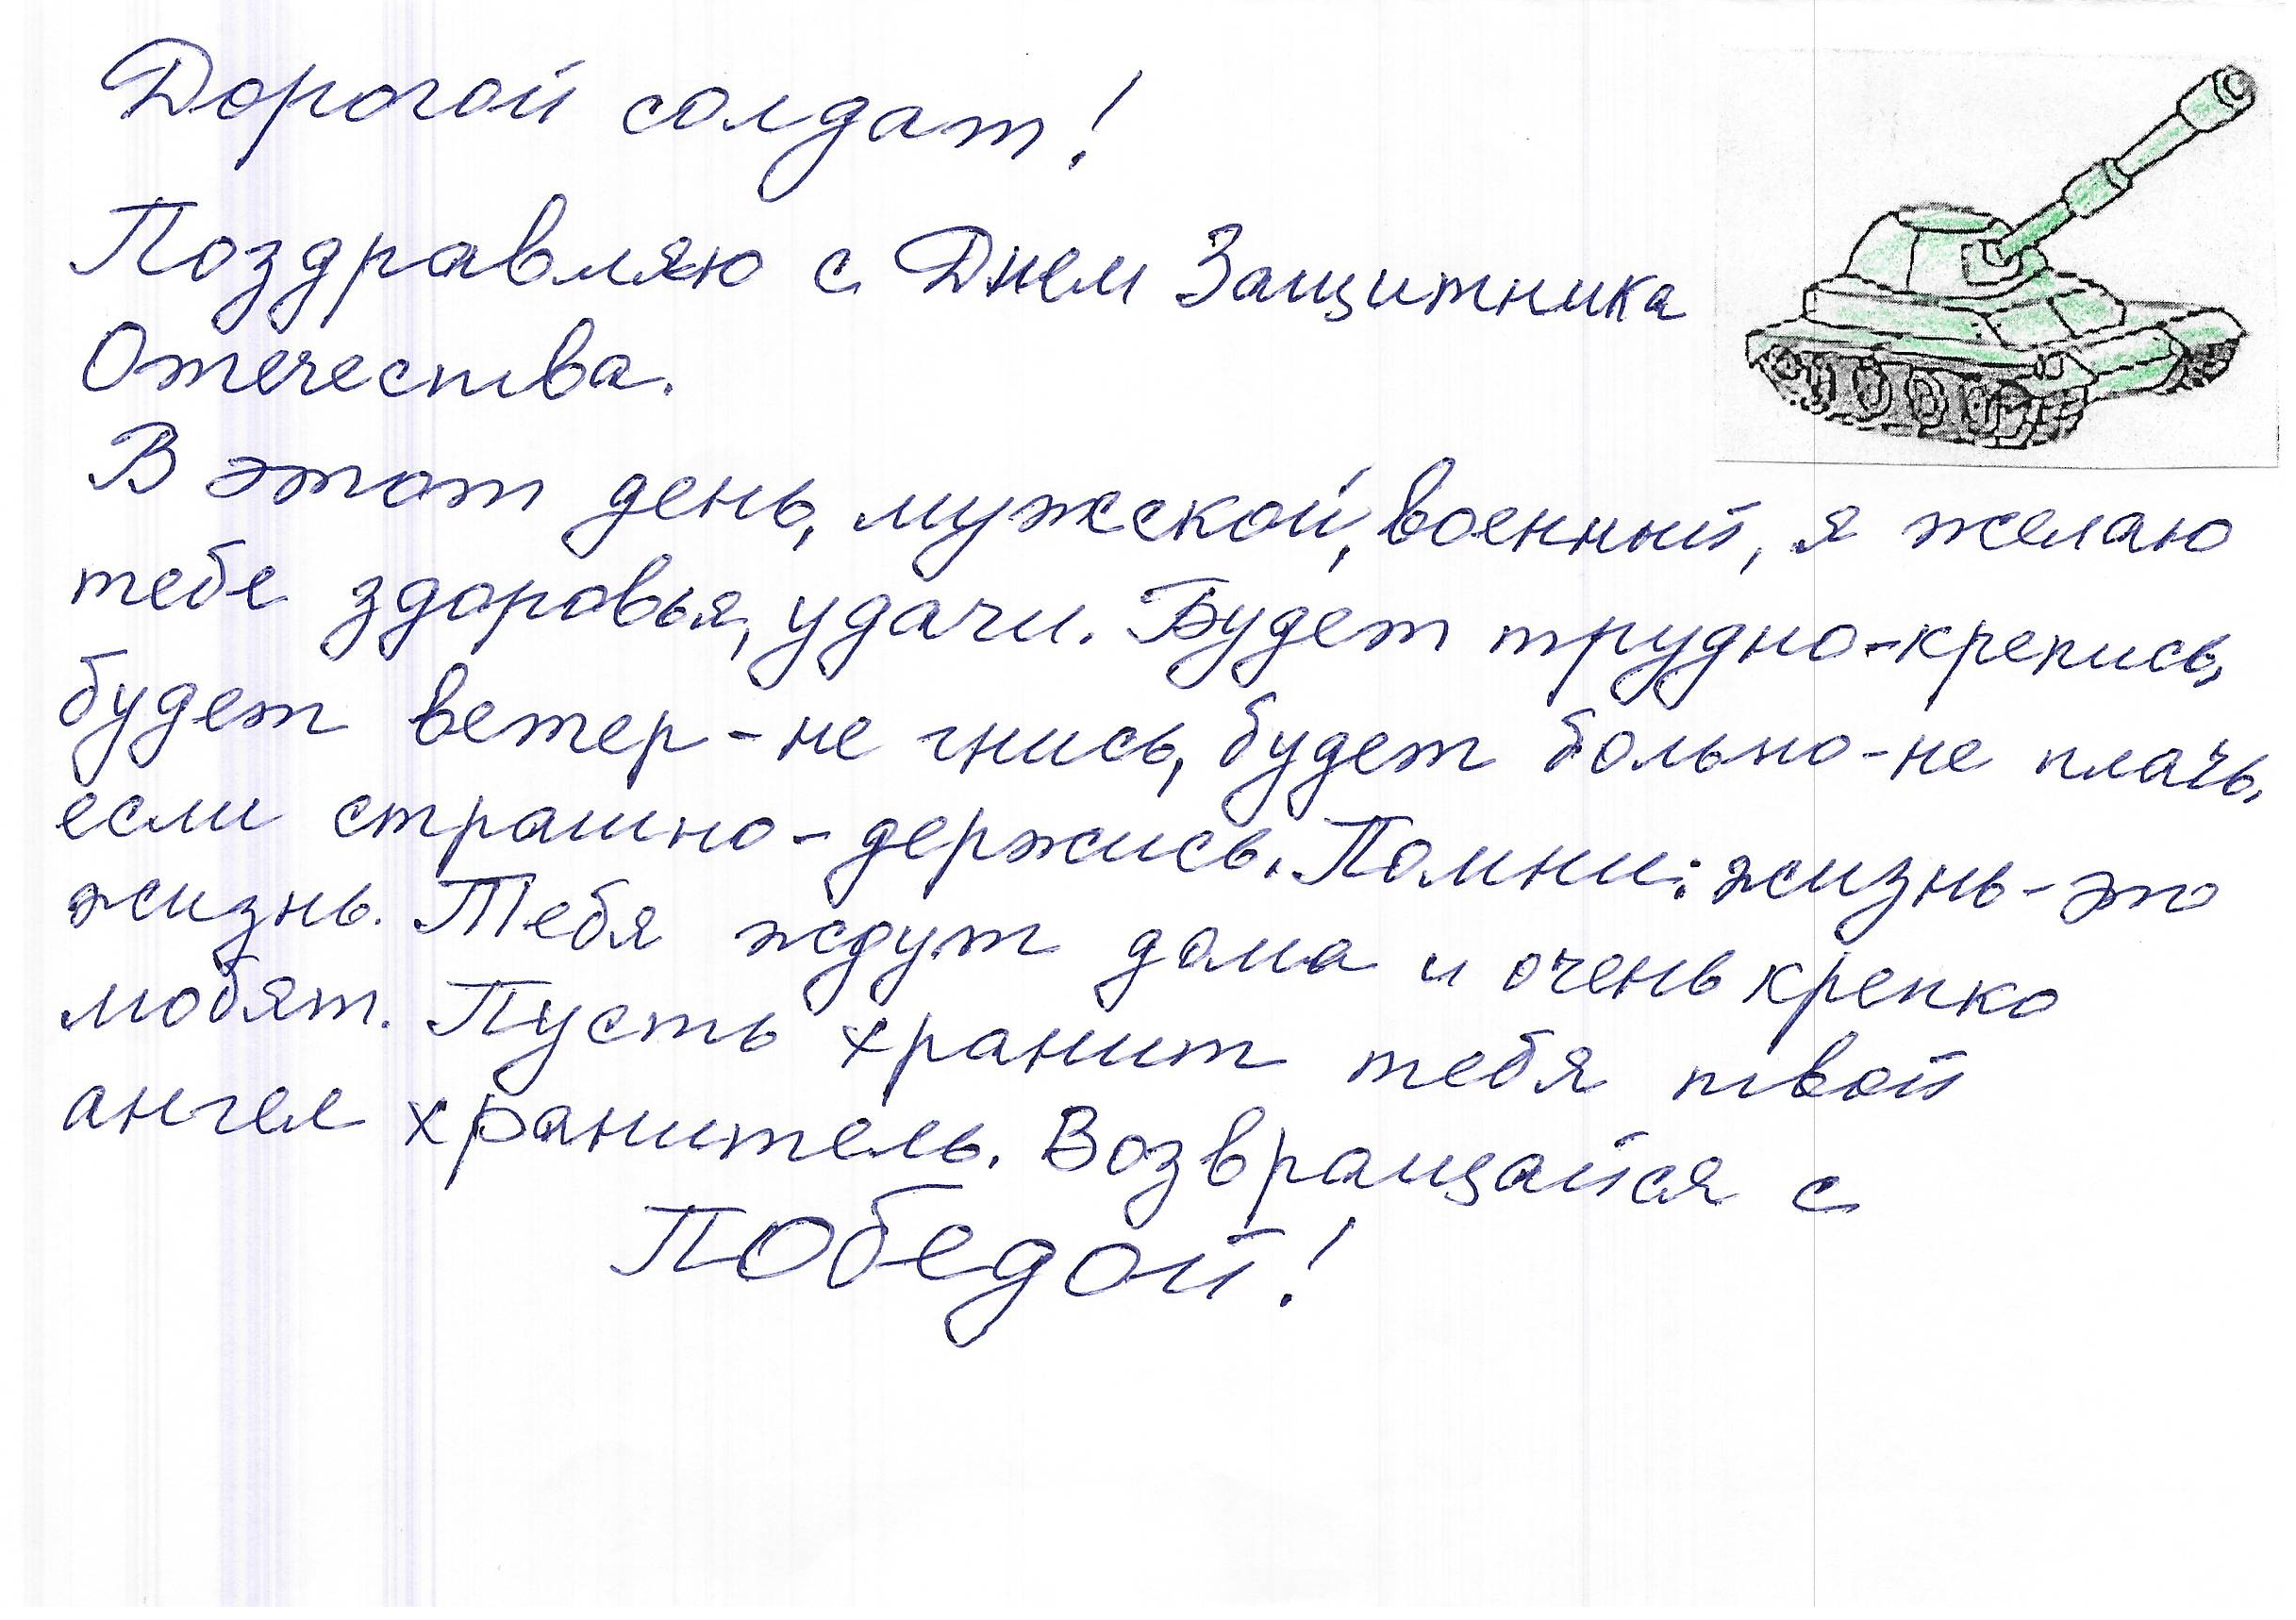 Дорогой солдат!
Поздравляю с Днем Защитника
Отечества.
В этот день, мужской, военный, я желаю
тебе здоровья, удачи. Будет трудно-крепись,
будет ветер-не гнись, будет больно-не плачь,
если страшно-держись. Помни: жизнь-это
жизнь. Тебя ждут дома и очень крепко
любят. Пусть хранит тебя твой
ангел хранитель. Возвращайся с
Победой!